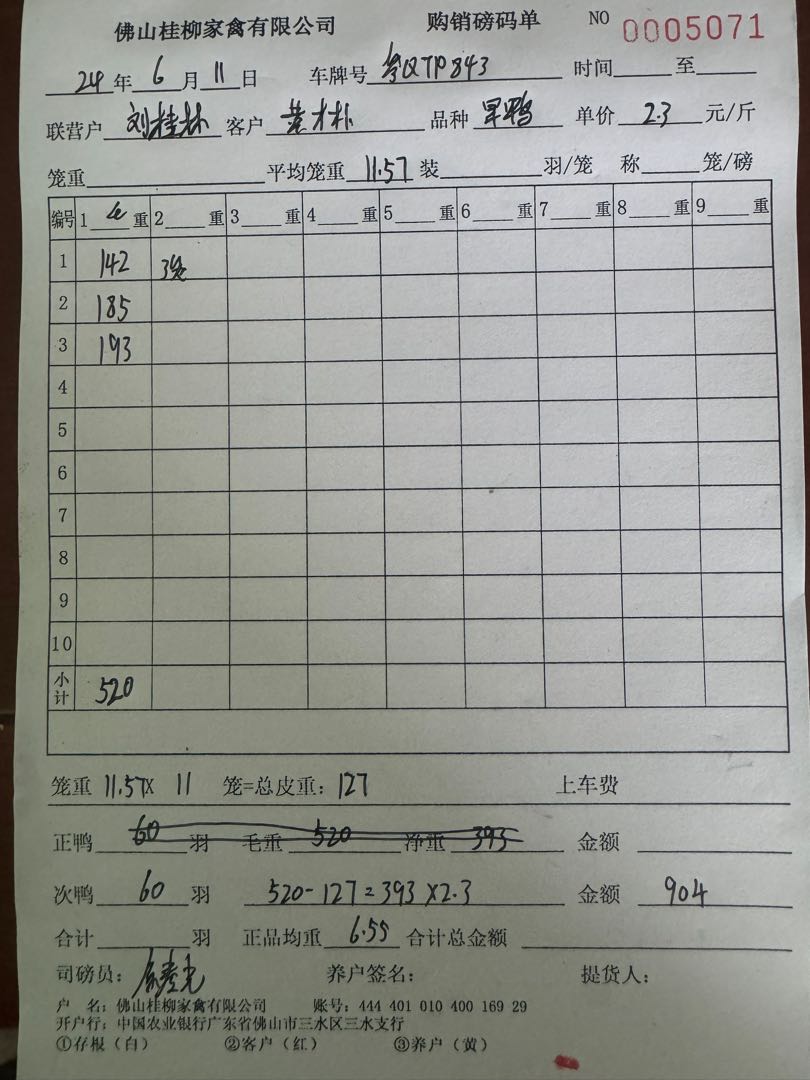 佛山桂柳家禽有限公司 购销磅码单 NO 0005071
24年6月11日 车牌号 粤QTP843 时间 至
联营户 刘桂林 客户 黄才朴 品种 旱鸭 单价 2.3 元/斤
笼重 平均笼重 11.57 装 羽/笼 称 笼/磅
编号 1 4 重 2 重 3 重 4 重 5 重 6 重 7 重 8 重 9 重
1 142
2 185
3 193
4
5
6
7
8
9
10
小计 520
笼重 11.57X 11 笼=总皮重：127 上车费
正鸭 60 羽 毛重 520 净重 393 金额
次鸭 60 羽 520-127=393X2.3 金额 904
合计 羽 正品均重 6.55 合计总金额
司磅员： 养户签名： 提货人：
户 名：佛山桂柳家禽有限公司 账号：444 401 010 400 169 29
开户行：中国农业银行广东省佛山市三水区三水支行
①存根（白） ②客户（红） ③养户（黄）